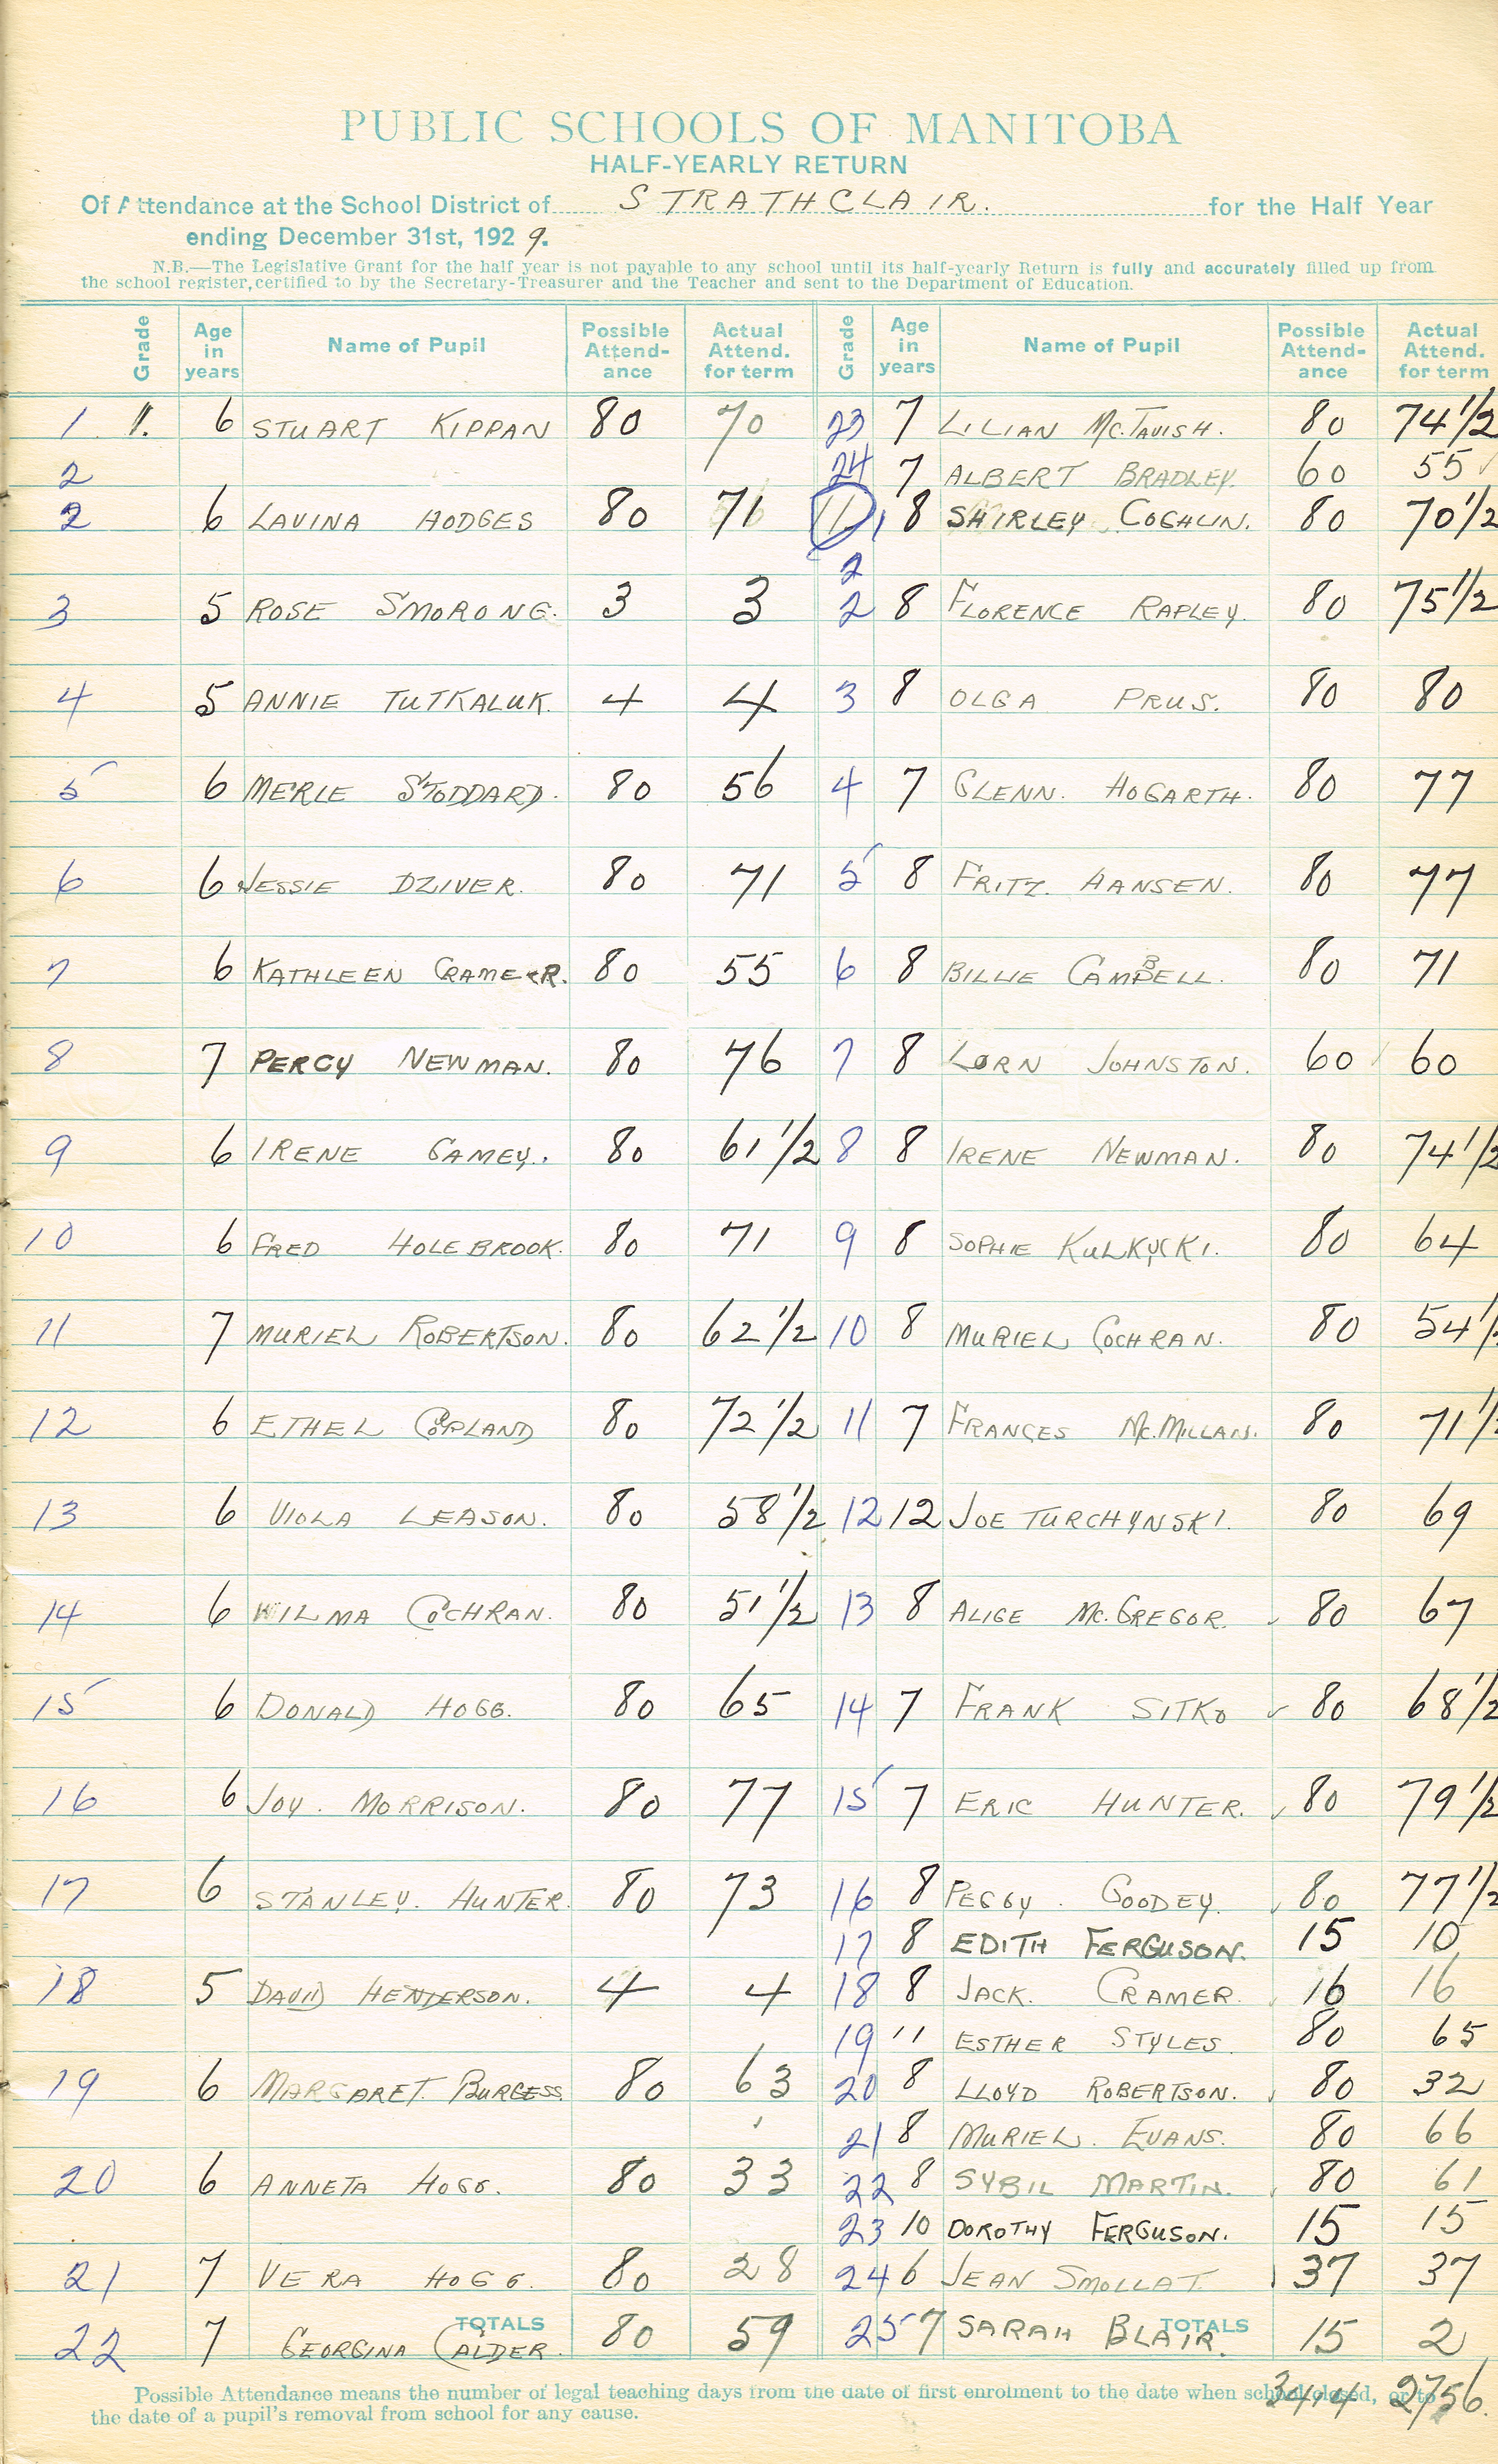 PUBLIC SCHOOLS OF MANITOBA
HALF-YEARLY RETURN
Of Attendance at the School District of STRATHCLAIR. for the Half Year
ending December 31st, 1929.
N.B.—The Legislative Grant for the half year is not payable to any school until its half-yearly Return is fully and accurately filled up from
the school register, certified to by the Secretary-Treasurer and the Teacher and sent to the Department of Education.
Grade Age in years Name of Pupil Possible Attend-ance Actual Attend. for term Grade Age in years Name of Pupil Possible Attend-ance Actual Attend. for term
1 1. 6 STUART KIPPAN 80 70 23 7 LILIAN Mc.TAVISH. 80 74 1/2
2 24 7 ALBERT BRADLEY. 60 55
2 6 LAVINA HODGES 80 71 11, 1 8 SHIRLEY COGHLIN. 80 70 1/2
2
3 5 ROSE SMORONG. 3 3 2 8 FLORENCE RAPLEY. 80 75 1/2
4 5 ANNIE TUTKALUK. 4 4 3 8 OLGA PRUS. 80 80
5 6 MERLE STODDARD. 80 56 4 7 GLENN. HOGARTH. 80 77
6 6 JESSIE DZIVER. 80 71 5 8 FRITZ. HANSEN. 80 77
7 6 KATHLEEN CRAMER. 80 55 6 8 BILLIE CAMPBELL. 80 71
8 7 PERCY NEWMAN. 80 76 7 8 LORN JOHNSTON. 60 60
9 6 IRENE GAMEY. 80 61 1/2 8 8 IRENE NEWMAN. 80 74 1/2
10 6 FRED HOLEBROOK. 80 71 9 8 SOPHIE KULKYCKI. 80 64
11 7 MURIEL ROBERTSON. 80 62 1/2 10 8 MURIEL COCHRAN. 80 54 1/
12 6 ETHEL COPLAND 80 72 1/2 11 7 FRANCES Mc.MILLAN. 80 71 1/
13 6 VIOLA LEASON. 80 58 1/2 12 12 JOE TURCHYNSKI. 80 69
14 6 WILMA COCHRAN. 80 51 1/2 13 8 ALICE Mc.GREGOR. 80 67
15 6 DONALD HOGG. 80 65 14 7 FRANK SITKO 80 68 1/2
16 6 JOY. MORRISON. 80 77 15 7 ERIC HUNTER. 80 79 1/2
17 6 STANLEY. HUNTER. 80 73 16 8 PEGGY. GOODEY. 80 77 1/2
17 8 EDITH FERGUSON. 15 10
18 5 DAVID HENDERSON. 4 4 18 8 JACK. CRAMER. 16 16
19 11 ESTHER STYLES. 80 65
19 6 MARGARET. BURGESS. 80 63 20 8 LLOYD ROBERTSON. 80 32
21 8 MURIEL. EVANS. 80 66
20 6 ANNETA HOGG. 80 33 22 8 SYBIL MARTIN. 80 61
23 10 DOROTHY FERGUSON. 15 15
21 7 VERA HOGG. 80 28 24 6 JEAN SMOLLAT. 37 37
TOTALS TOTALS
22 7 GEORGINA CALDER. 80 59 25 7 SARAH BLAIR. 15 2
3414 2756.
Possible Attendance means the number of legal teaching days from the date of first enrolment to the date when school closed, or to
the date of a pupil's removal from school for any cause.